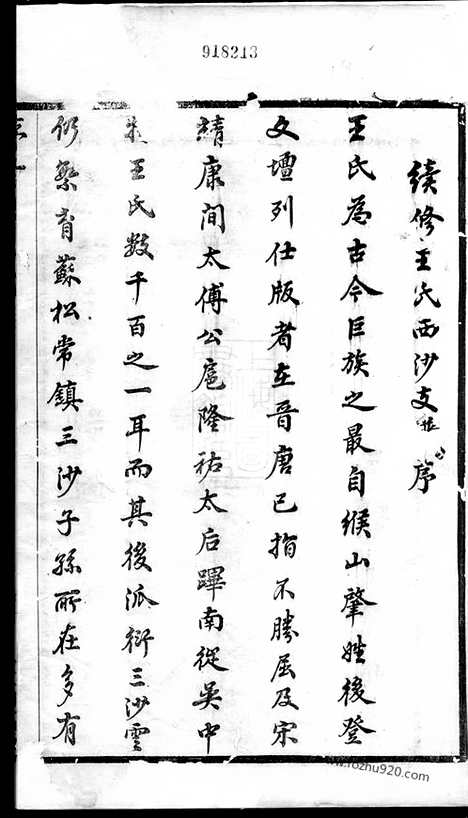 918213
續修王氏西沙支序
王氏為古今巨族之最自緱山肇姓後登
文壇列仕版者在晉唐已指不勝屈及宋
靖康間太傅公扈隆祐太后蹕南從吳中
王氏數千百之一耳而其後派衍三沙雲
仍繁育蘇松常鎮三沙子孫所在多有
www.rozhu920.com